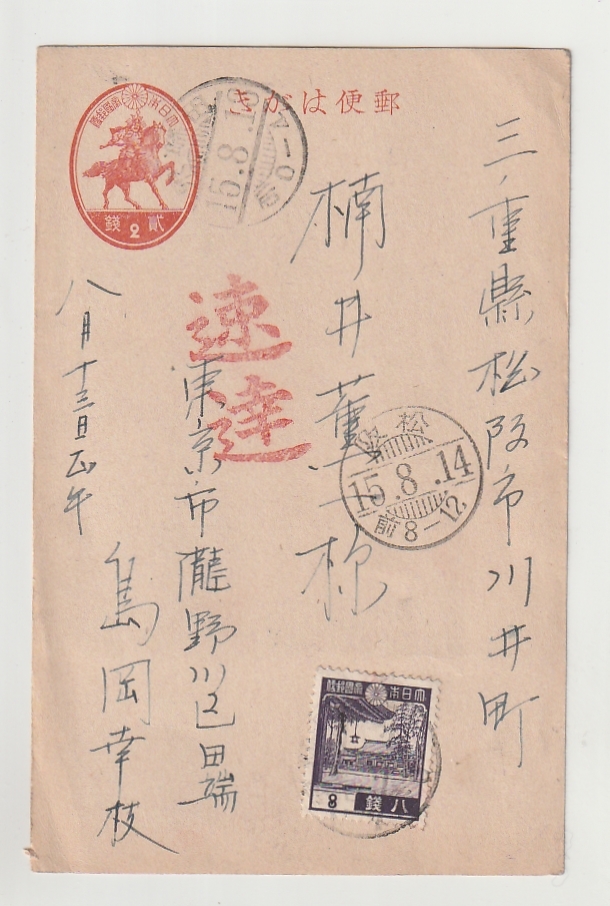 郵便はがき
大日本帝國郵便
貳錢
2
15.8.
前0-
三重縣松阪市川井町
楠井薫様
松阪
15.8.14
前8-12
速達
東京市瀧野川区田端
島岡幸枝
八月十三日正午
大日本帝國郵便
八錢
8